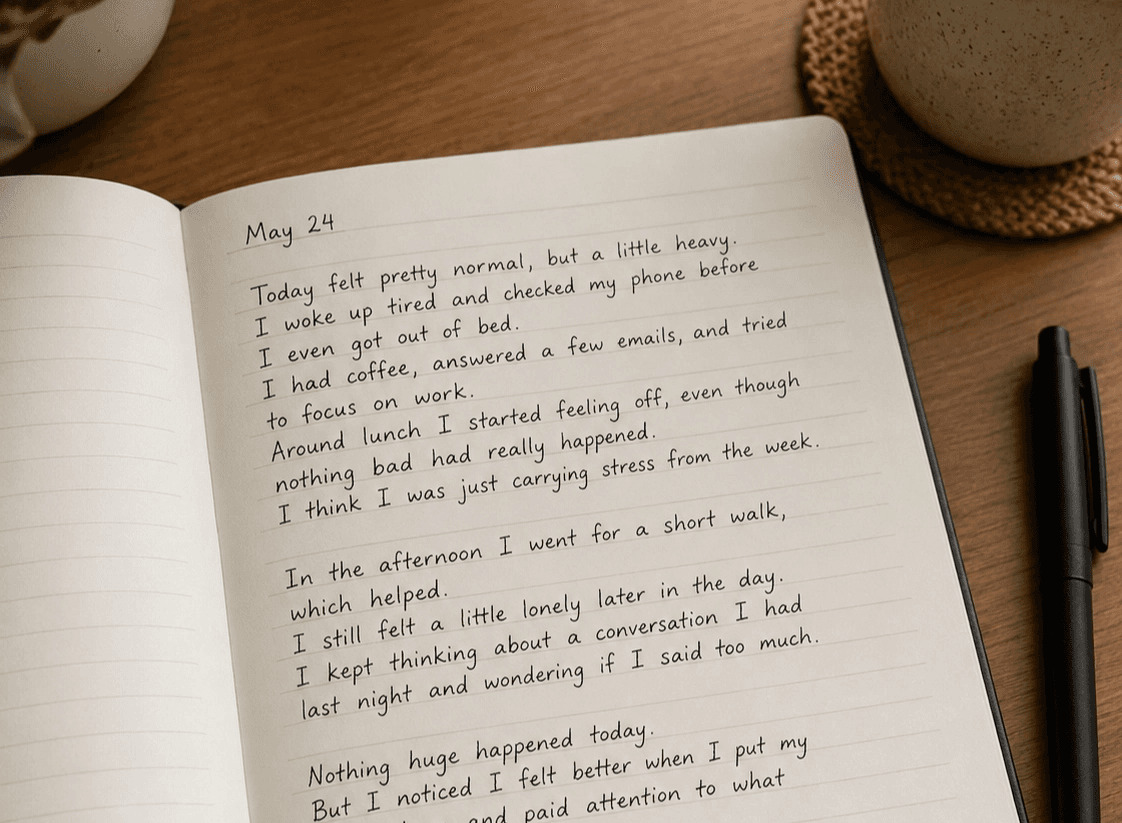 May 24
Today felt pretty normal, but a little heavy.
I woke up tired and checked my phone before
I even got out of bed.
I had coffee, answered a few emails, and tried
to focus on work.
Around lunch I started feeling off, even though
nothing bad had really happened.
I think I was just carrying stress from the week.
In the afternoon I went for a short walk,
which helped.
I still felt a little lonely later in the day.
I kept thinking about a conversation I had
last night and wondering if I said too much.
Nothing huge happened today.
But I noticed I felt better when I put my
and paid attention to what